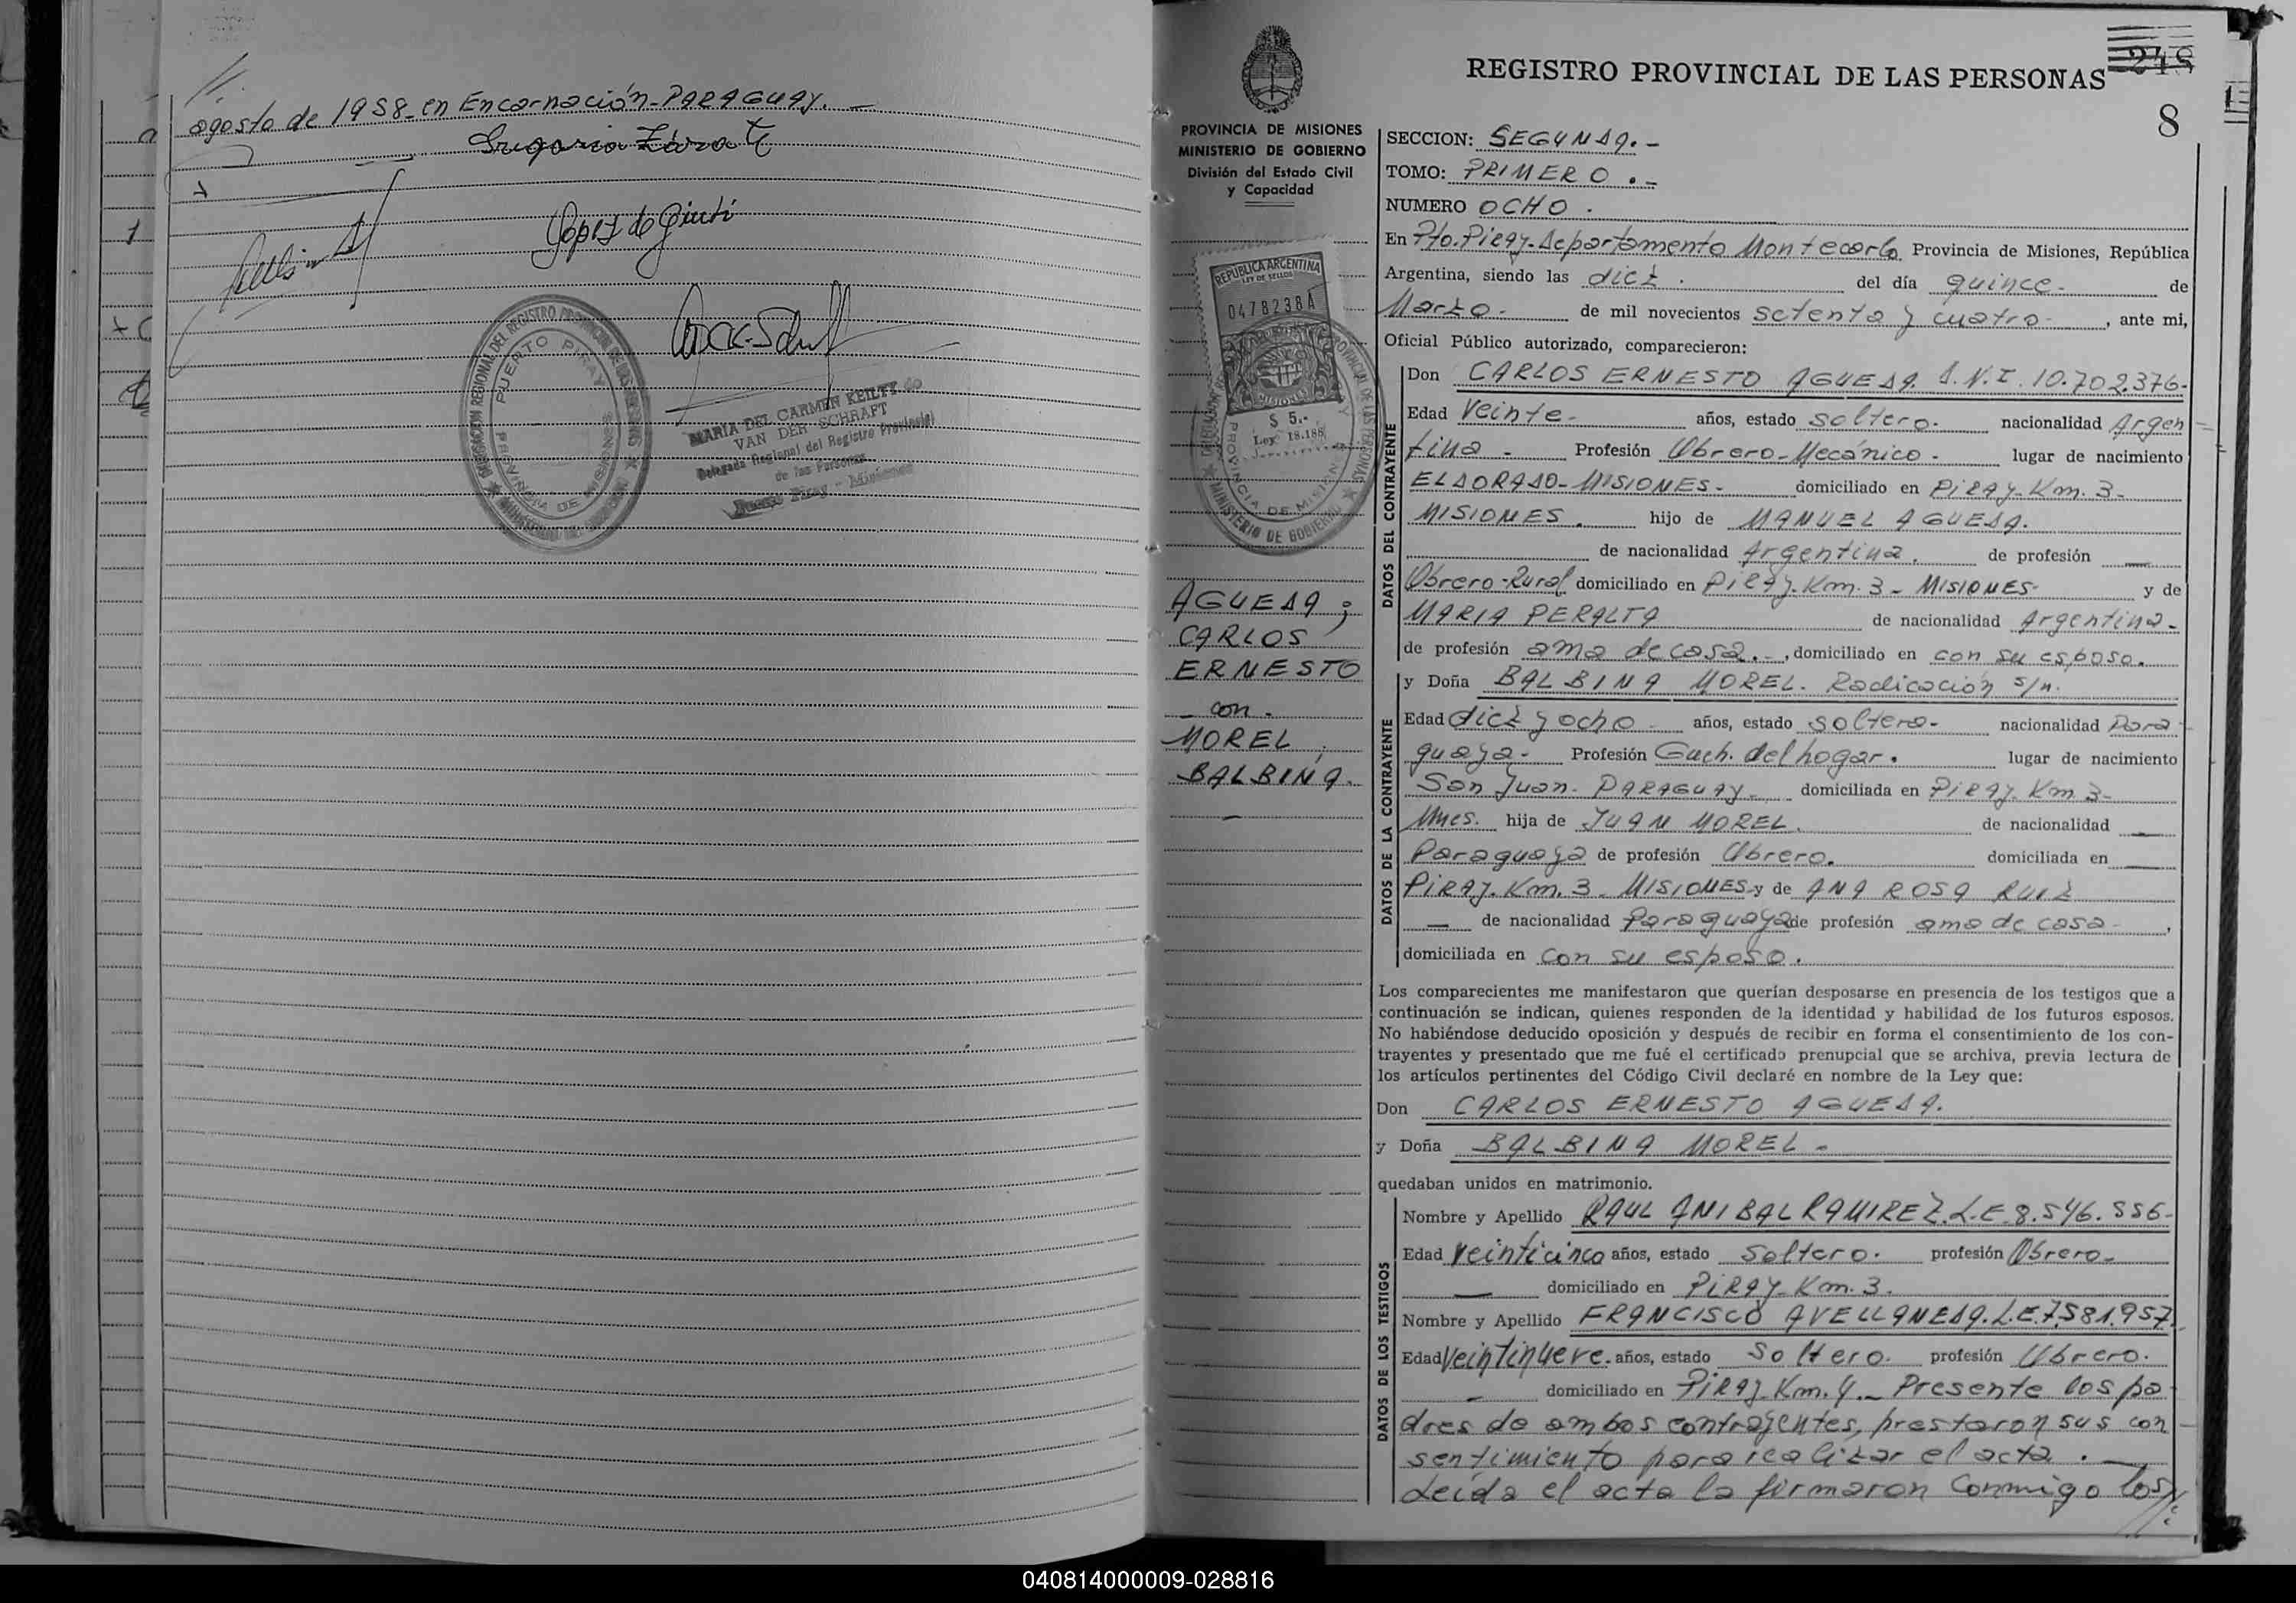 agosto de 1958 en Encarnación-PARAGUAY.-
Gregoria Zárate
López de Giuti
DELEGACION REGIONAL DEL REGISTRO PROVINCIAL DE LAS PERSONAS
PUERTO PIRAY
PROVINCIA DE MISIONES
MARIA DEL CARMEN KEILTY de
VAN DER SCHRAFT
Delegada Regional del Registro Provincial
de las Personas
Puerto Piray - Misiones
248
REGISTRO PROVINCIAL DE LAS PERSONAS
8
PROVINCIA DE MISIONES
MINISTERIO DE GOBIERNO
División del Estado Civil
y Capacidad
REPUBLICA ARGENTINA
LEY DE SELLOS
0478238A
MISIONES
$ 5.-
Ley 18.188
AGUEDA;
CARLOS
ERNESTO
- con -
MOREL
BALBINA.
SECCION: SEGUNDA.-
TOMO: PRIMERO.-
NUMERO OCHO.
En Pto. Piray-Departamento Montecarlo Provincia de Misiones, República
Argentina, siendo las diez. del día quince- de
Marzo- de mil novecientos setenta y cuatro- , ante mi,
Oficial Público autorizado, comparecieron:
DATOS DEL CONTRAYENTE
Don CARLOS ERNESTO AGUEDA. D.N.I. 10.702.376-
Edad Veinte- años, estado soltero. nacionalidad Argen
tina - Profesión Obrero-Mecánico- lugar de nacimiento
ELDORADO-MISIONES- domiciliado en PIRAY-Km.3-
MISIONES. hijo de MANUEL AGUEDA.
de nacionalidad Argentina. de profesión —
Obrero-Rural domiciliado en PIRAY-Km.3-MISIONES- y de
MARIA PERALTA de nacionalidad Argentina-
de profesión ama de casa.-, domiciliado en con su esposo.
DATOS DE LA CONTRAYENTE
y Doña BALBINA MOREL. Radicación s/n.
Edad diez y ocho años, estado soltera- nacionalidad Para
guaya- Profesión Gueh. del hogar. lugar de nacimiento
San Juan- PARAGUAY- domiciliada en PIRAY-Km 3-
Mnes. hija de JUAN MOREL. de nacionalidad —
Paraguaya de profesión Obrero. domiciliada en —
PIRAY-Km.3-MISIONES-y de ANA ROSA RUIZ
— de nacionalidad Paraguaya de profesión ama de casa- ,
domiciliada en con su esposo.
Los comparecientes me manifestaron que querían desposarse en presencia de los testigos que a
continuación se indican, quienes responden de la identidad y habilidad de los futuros esposos.
No habiéndose deducido oposición y después de recibir en forma el consentimiento de los con-
trayentes y presentado que me fué el certificado prenupcial que se archiva, previa lectura de
los artículos pertinentes del Código Civil declaré en nombre de la Ley que:
Don CARLOS ERNESTO AGUEDA.
y Doña BALBINA MOREL-
quedaban unidos en matrimonio.
DATOS DE LOS TESTIGOS
Nombre y Apellido RAUL ANIBAL RAMIREZ. L.E 8.546.556-
Edad veinticinco años, estado soltero. profesión Obrero-
— domiciliado en PIRAY-Km.3.
Nombre y Apellido FRANCISCO AVELLANEDA. L.E.7.581.957.
Edad veintinueve. años, estado soltero. profesión Obrero.
- domiciliado en PIRAY-Km.4.- Presente los pa
dres de ambos contrayentes, prestaron sus con
sentimiento para realizar el acta.—
Leída el acta la firmaron conmigo los//:
040814000009-028816